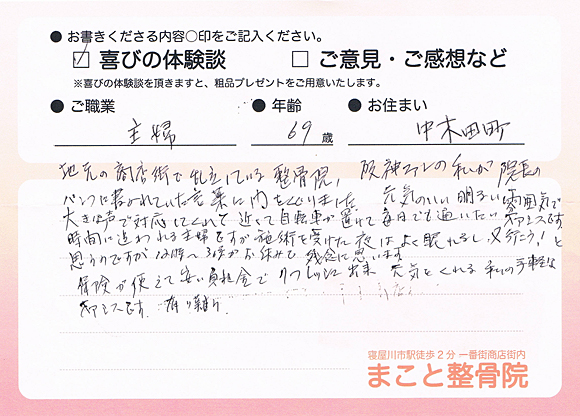 ● お書きくださる内容○印をご記入ください。
☑ 喜びの体験談 □ ご意見・ご感想など
※喜びの体験談を頂きますと、粗品プレゼントをご用意いたします。
● ご職業 ● 年齢 ● お住まい
主婦 69歳 中木田町
地元の商店街で乱立している整骨院、阪神ファンの私が院長の
パンフに書かれていた言葉に内をくぐりました。元気のいい明るい雰囲気で
大きな声で対応してくれて近くて自転車が置けて毎日でも通いたい です
時間に追われる主婦ですが施術を受けた夜はよく眠れるし、又行こう!と
思うのですが 12時〜3時がお休みで残念に思います。
保険が使えて安い負担金でリフレッシュ出来 元気をくれる私の手軽な
です。有り難う。
寝屋川市駅徒歩2分 一番街商店街内
まこと整骨院